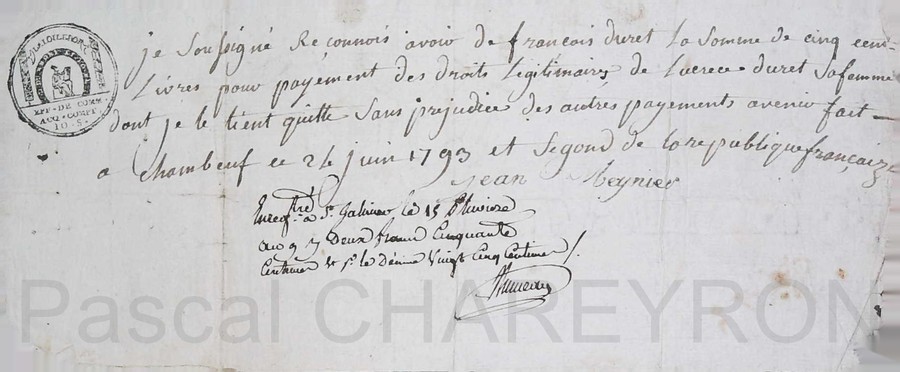 LA LOI LE PORT
EFF · DE COMM ·
ACQ · COMPT
10 · S ·
je Soussigné Reconnois avoir de francois duret La Somme de cinq cent
Livres pour payément des droits Légitimaires de Lucrece duret Safemme
dont je le tient quitte Sans prejudice des autres payements avenir fait
a Chambeuf ce 24 juin 1793 et Segond de la republique française
Jean Meynier
Enregtré a St. Galmier le 15
an 9 Deux francs Cinquante
Centimes & pr. le Décime Vingt Cinq Centimes
Pascal CHAREYRON